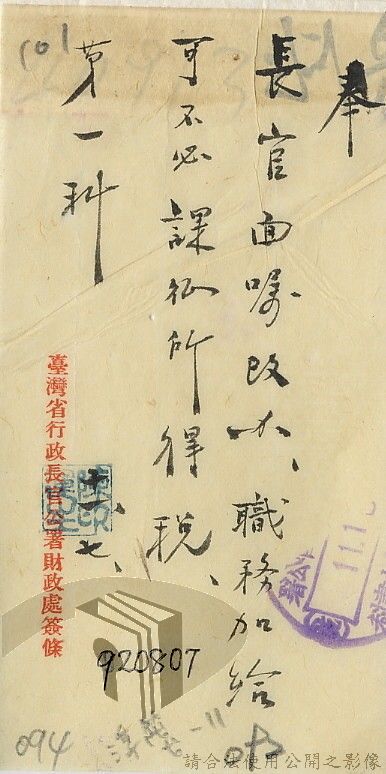 奉
長官面囑改、職務加給
可不必課征所得稅、
第一科
十一、七、
臺灣省行政長官公署財政處簽條
101
11.1
920807
094
請合法使用公開之影像